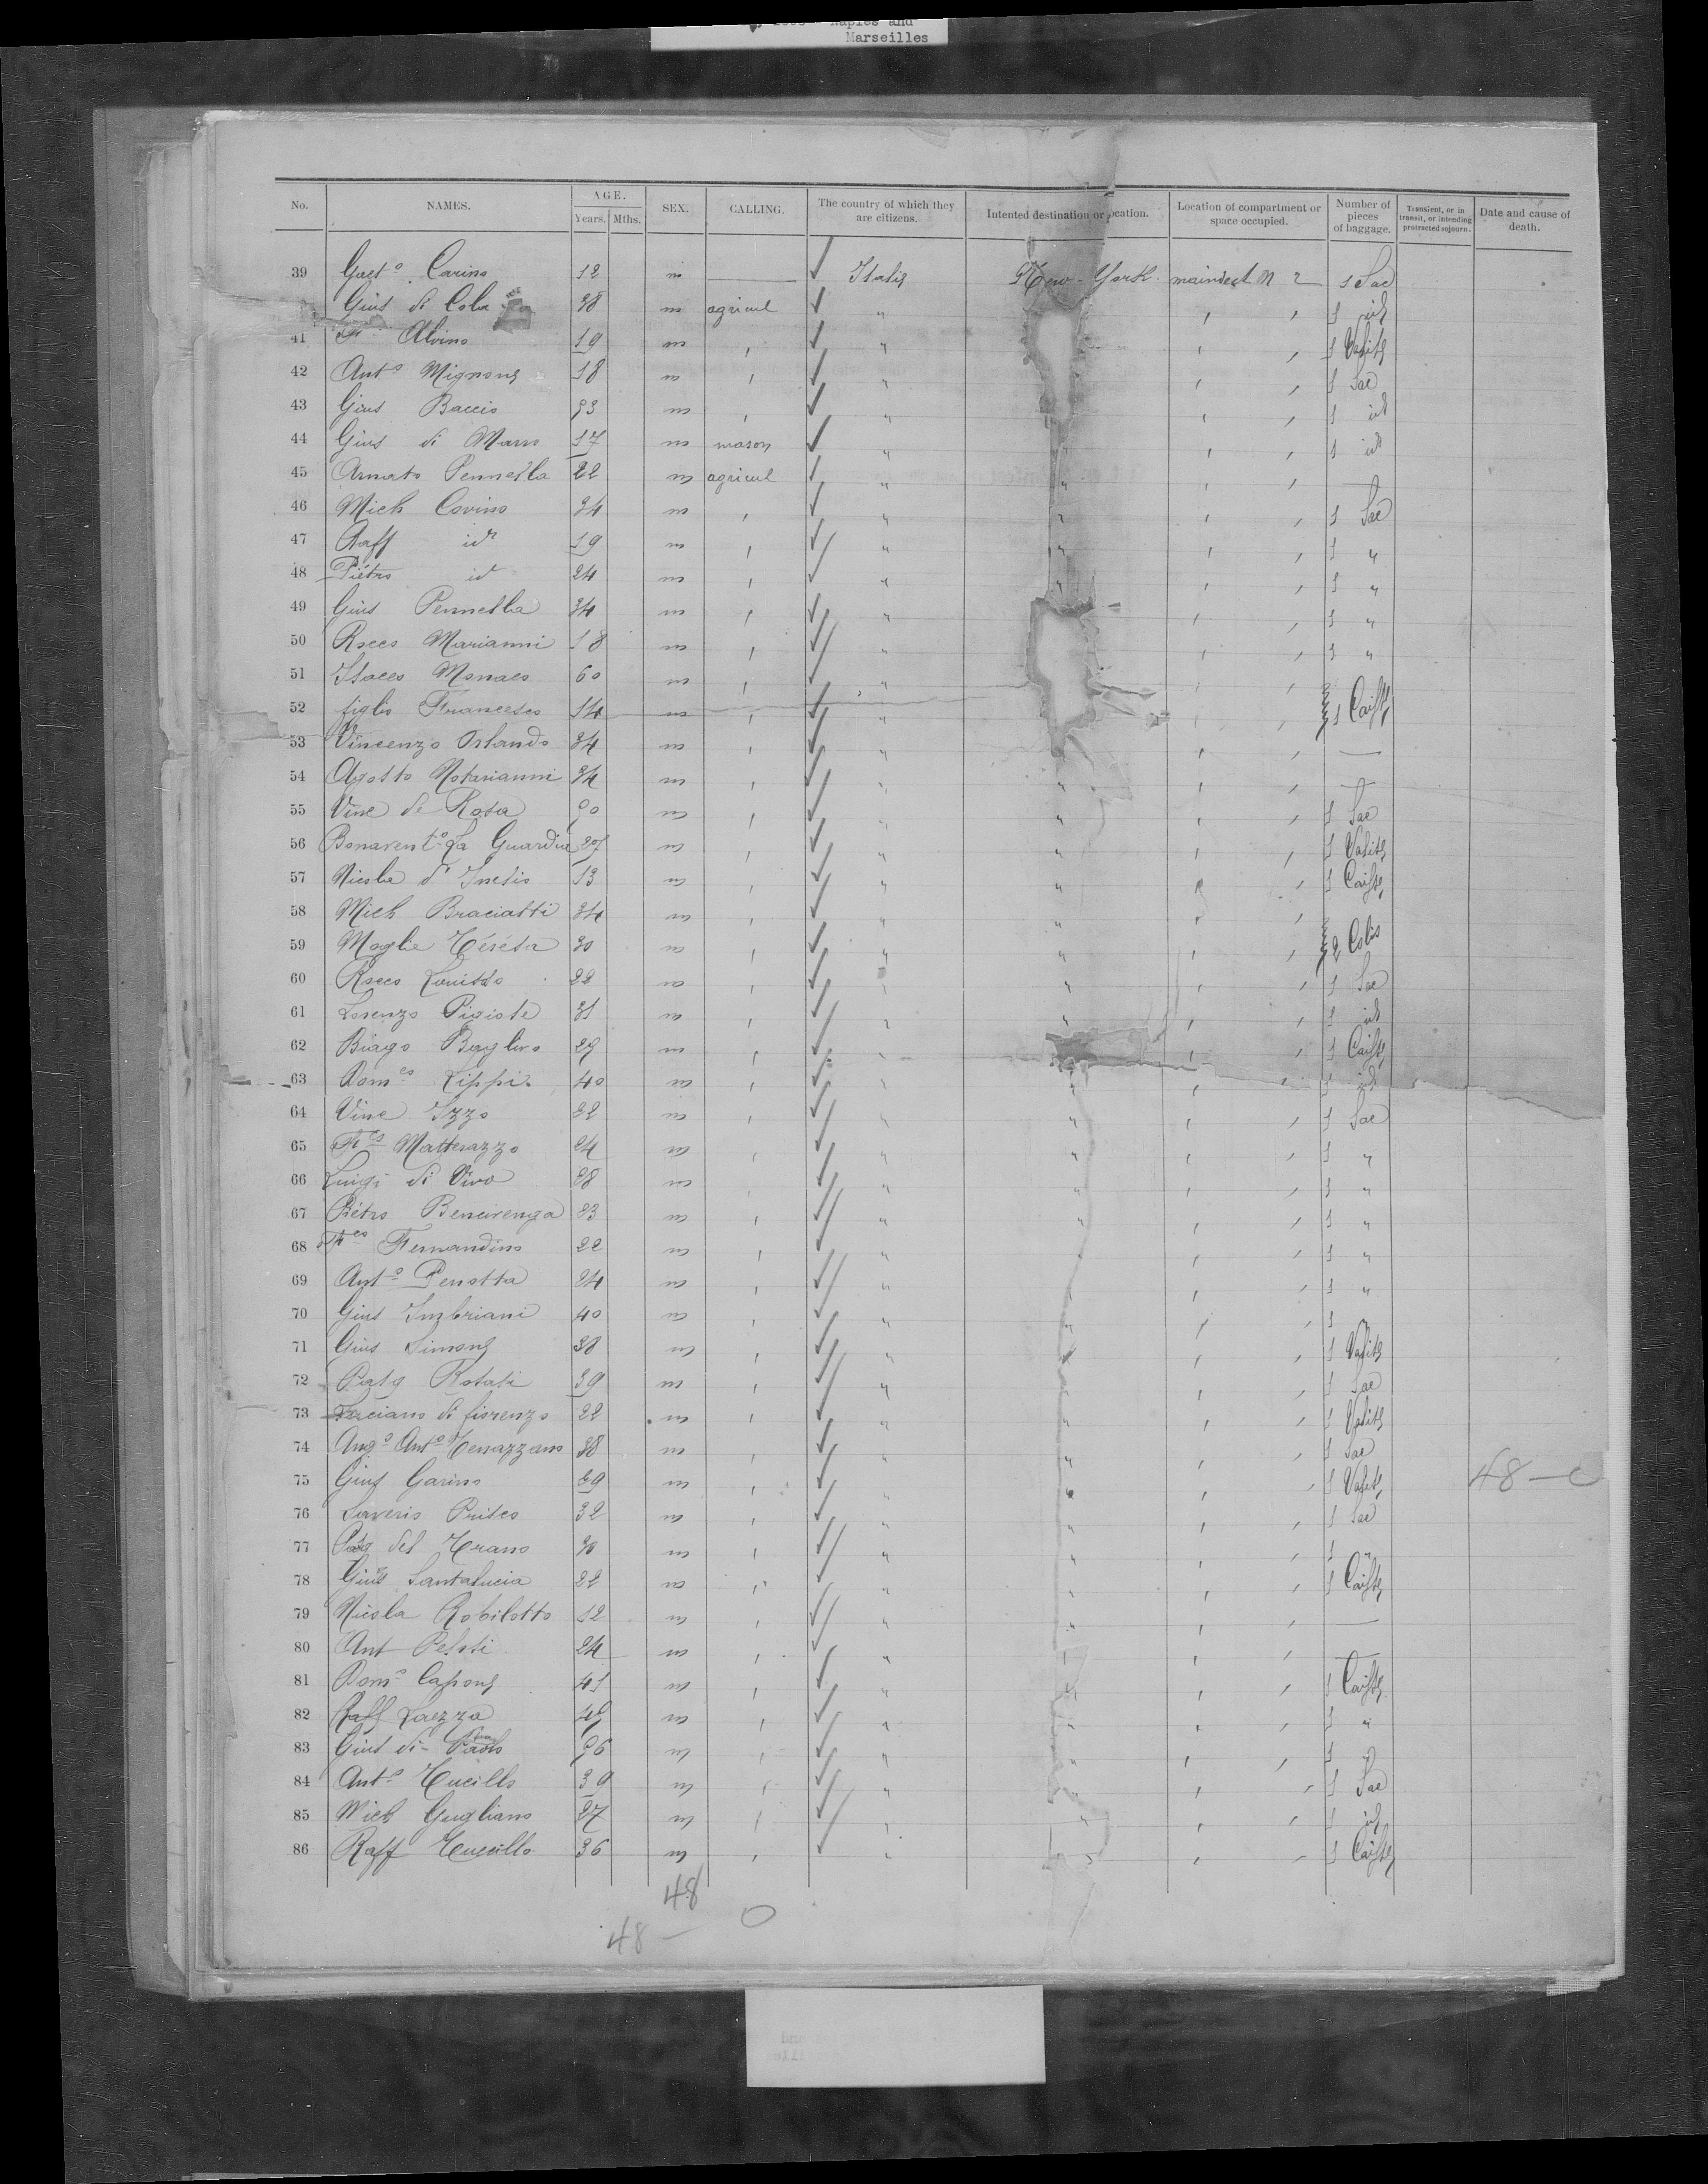 Naples and
Marseilles
No. NAMES. AGE. Years. Mths. SEX. CALLING. The country of which they are citizens. Intented destination or location. Location of compartment or space occupied. Number of pieces of baggage. Transient, or in transit, or intending protracted sojourn. Date and cause of death.
39 Gaet.o Carino 12 m — ✓ Italie New-York maindeck N 2 1 Sac
Gius di Cola 38 m agricul ✓ " , , 1 id
41 Fr Alvino 19 m , ✓ " , , 1 Valise
42 Ant.o Mignone 18 m , ✓ " , , 1 Sac
43 Gius Baccio 23 m , ✓ " , , 1 id
44 Gius di Marco 17 m mason ✓ " " , , 1 id
45 Amato Pennella 22 m agricul ✓ " " , , —
46 Mich Covino 34 m , ✓ " " , , 1 Sac
47 Raff id 19 m , ✓ " " , , 1 "
48 Pietro id 24 m , ✓ " " , , 1 "
49 Gius Pennella 34 m , ✓ " , , 1 "
50 Rocco Marianni 18 m , ✓ " , , 1 "
51 Monaco 60 m , ✓ " , ,
52 figlio Francesco 14 m , ✓ " , , 1 Caisse
53 Vincenzo Orlando 34 m , ✓ " , , —
54 Agosto Notarianni 34 m , ✓ " " , , —
55 Vinc di Rosa 20 m , ✓ " " , , 1 Sac
56 Bonavent.o La Guardia 27 m , ✓ " " , , 1 Valise
57 Nicola d' Inelio 13 m , ✓ " " , , 1 Caisse
58 Mich Braciatti 34 m , ✓ " " , ,
59 Moglie Térésa 30 m , ✓ " " , , 2 Colis
60 Rocco 22 m , ✓ " " , , 1 Sac
61 Lorenzo 31 m , ✓ " " , , 1 id
62 Biago Baglivo 29 m , ✓ " , , 1 Caisse
63 Dom.co Lippi 40 m , ✓ " " , , 1 id
64 Vinc Izzo 32 m , ✓ " " , , 1 Sac
65 Fr.co Matterazzo 24 m , ✓ " " , , 1 "
66 Luigi di Vivo 28 m , ✓ " " , , 1 "
67 Piétro Bencivenga 23 m , ✓ " " , , 1 "
68 Fr.co Fernandino 22 m , ✓ " , , 1 "
69 Ant.o Perotta 24 m , ✓ " , , 1 "
70 Gius Imbriani 40 m , ✓ " " , , 1 "
71 Gius Simone 38 m , ✓ " " , , 1 Valise
72 Pasq Rotati 39 m , ✓ " " , , 1 Sac
73 di fiorenzo 22 m , ✓ " " , , 1 Valise
74 Ang.o Ant.o Terrazzano 38 m , ✓ " " , , 1 Sac
75 Gius Garino 29 m , ✓ " " , , 1 Valise 48 —
76 Saverio 32 m , ✓ " " , , 1 Sac
77 Pasq del Trano 30 m , ✓ " " , , 1 "
78 Gius Santalucia 22 m , ✓ " " , , 1 Caisse
79 Nicola Robilotto 12 m , ✓ " " , , —
80 Ant Pelosi 24 m , ✓ " " , , —
81 Dom.o Capone 41 m , ✓ " " , , 1 Caisse
82 Raff Laezza m , ✓ " " , , 1 "
83 Gius di 26 m , ✓ " " , , 1 "
84 Ant.o Tucillo 39 m , ✓ " " , , 1 Sac
85 Mich Gugliano 27 m , ✓ " " , , 1 id
86 Raff Tuccillo 36 m , ✓ " " , , 1 Caisse
48
48 — 0